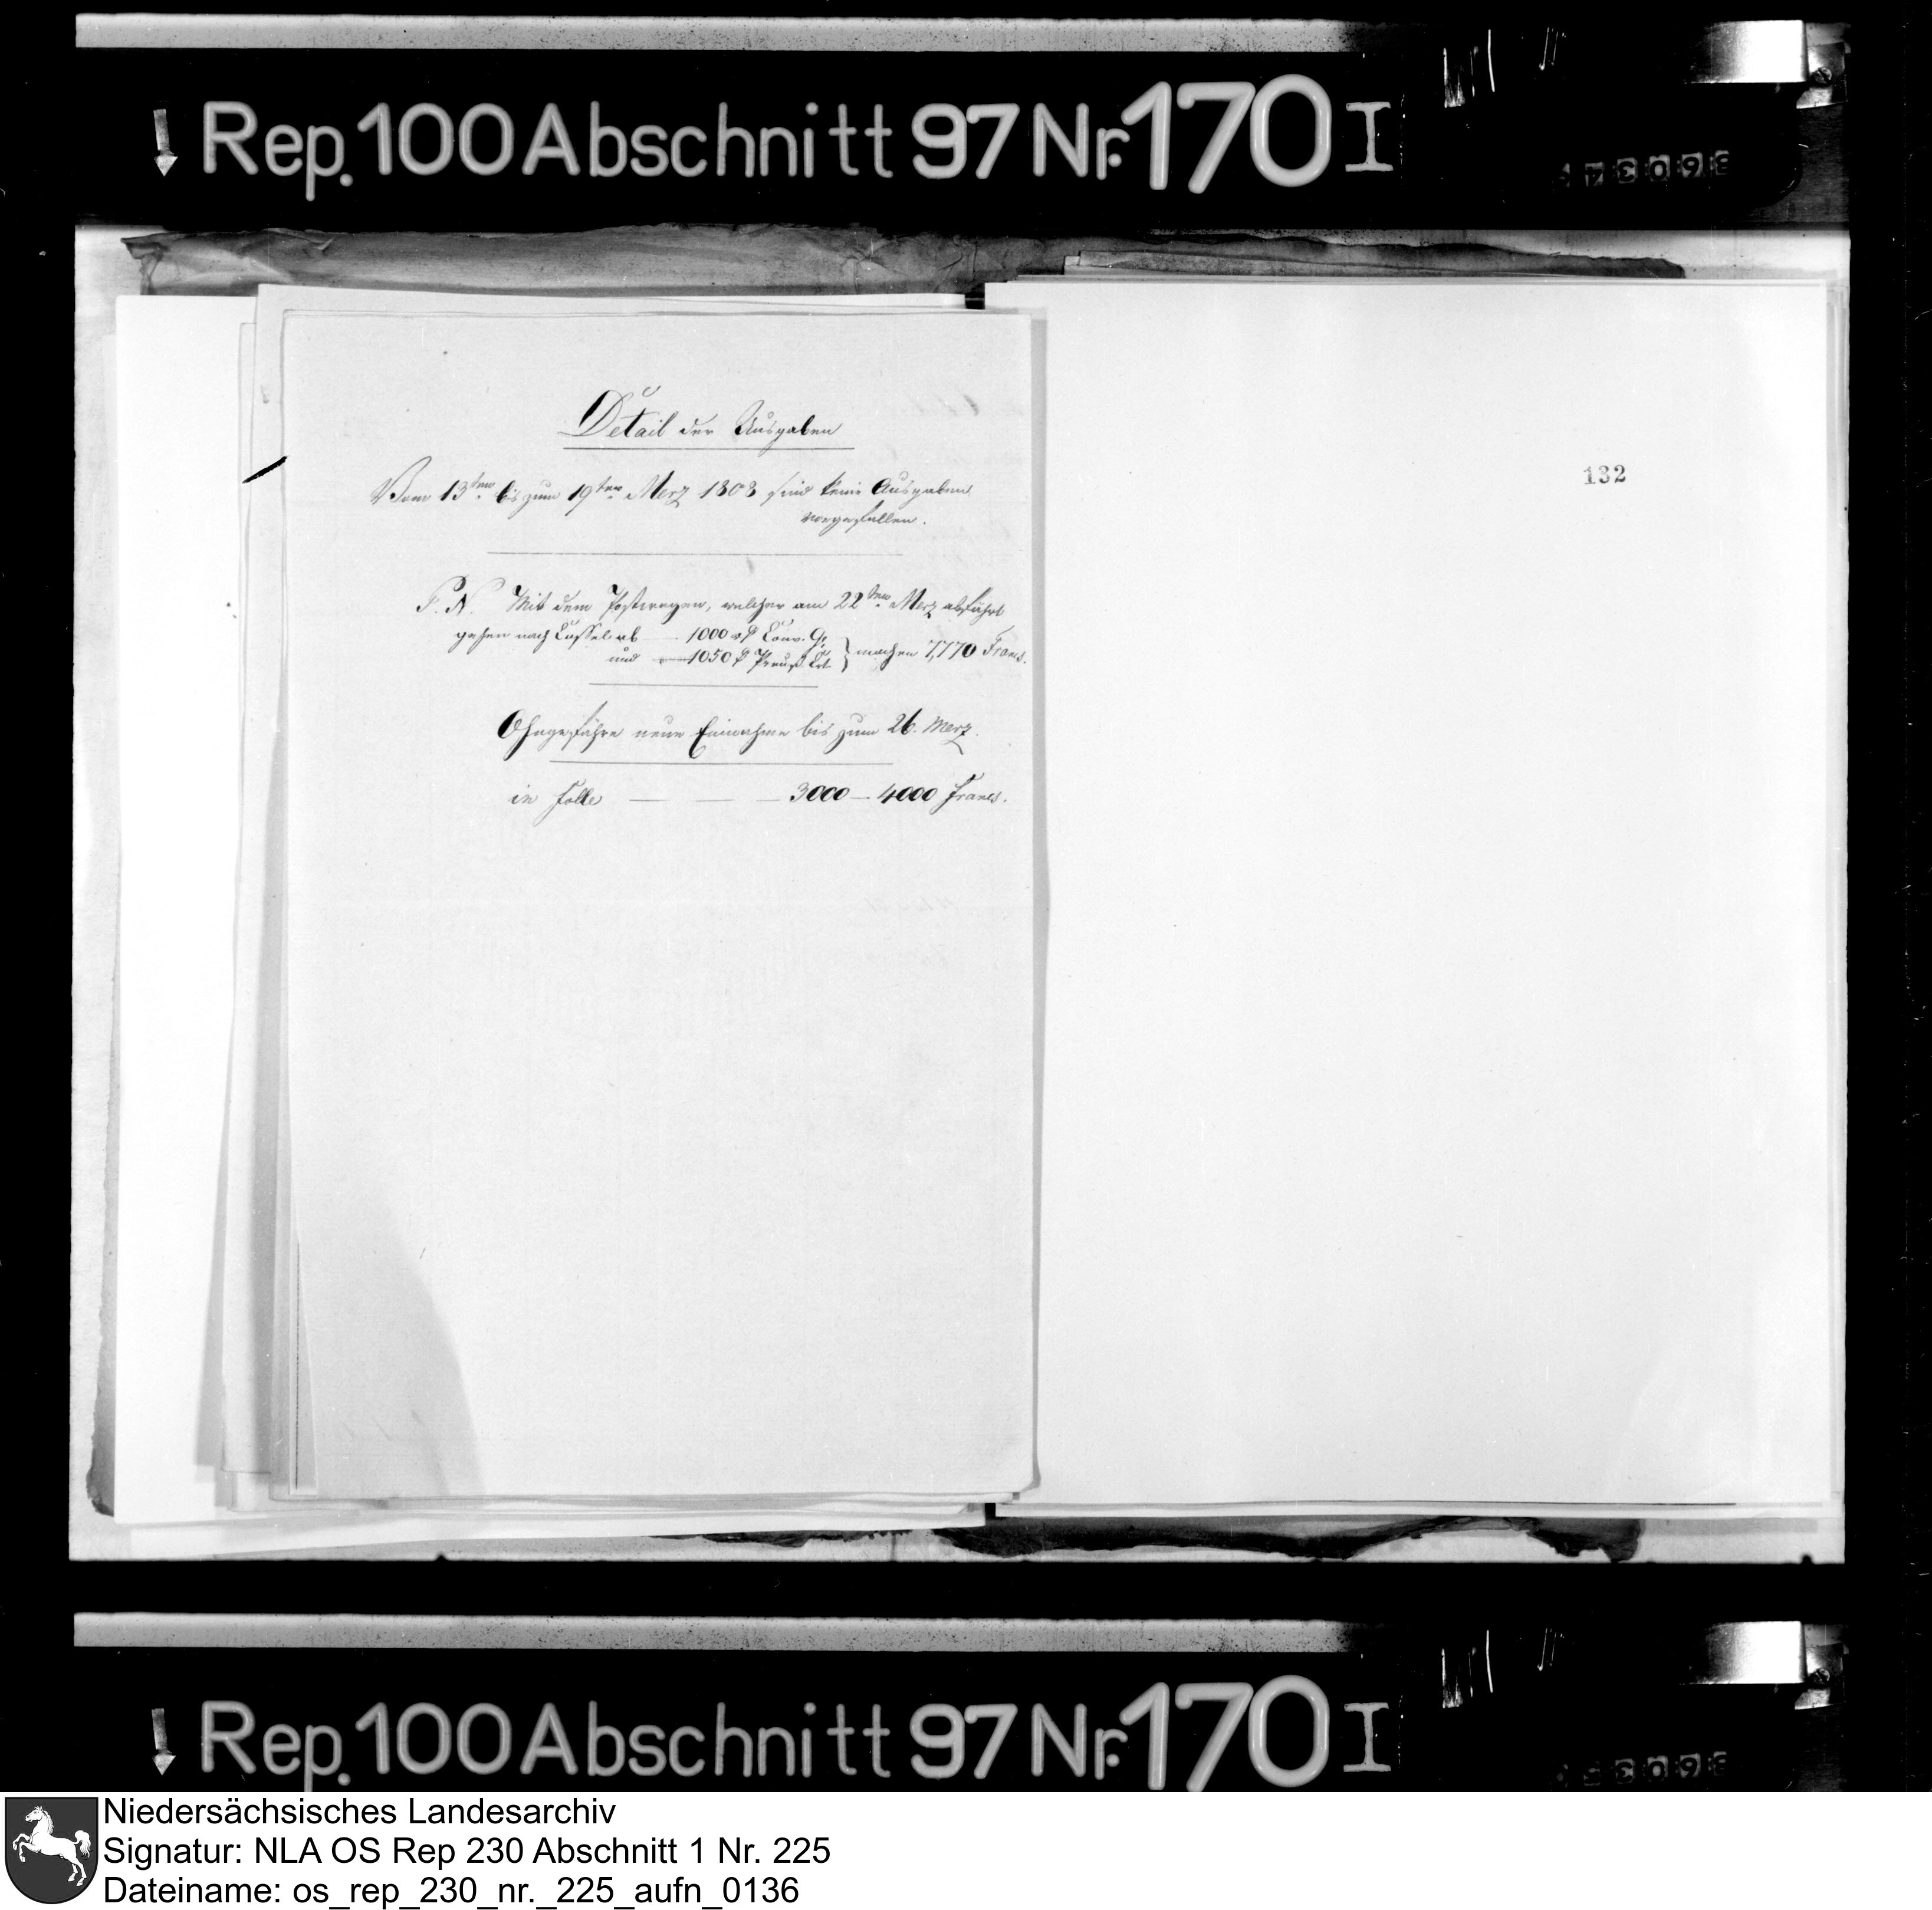 Rep. 100 Abschnitt 97 Nr. 170 I
Detail der Ausgaben
Vom 13ten bis zum 19ten Merz 1808 sind keine Ausgaben
vorgefallen.
P. N. Mit dem Postwagen, welcher am 22ten Merz abfährt
gehen nach Cassel ab 1000 Conv.
und 1050 Preuß. Crt. } machen 7,770 Francs.
Ohngefähre neue Einnahme bis zum 26. Merz.
in — — — 3000 — 4000 Francs.
132
Rep. 100 Abschnitt 97 Nr. 170 I
Niedersächsisches Landesarchiv
Signatur: NLA OS Rep 230 Abschnitt 1 Nr. 225
Dateiname: os_rep_230_nr._225_aufn_0136